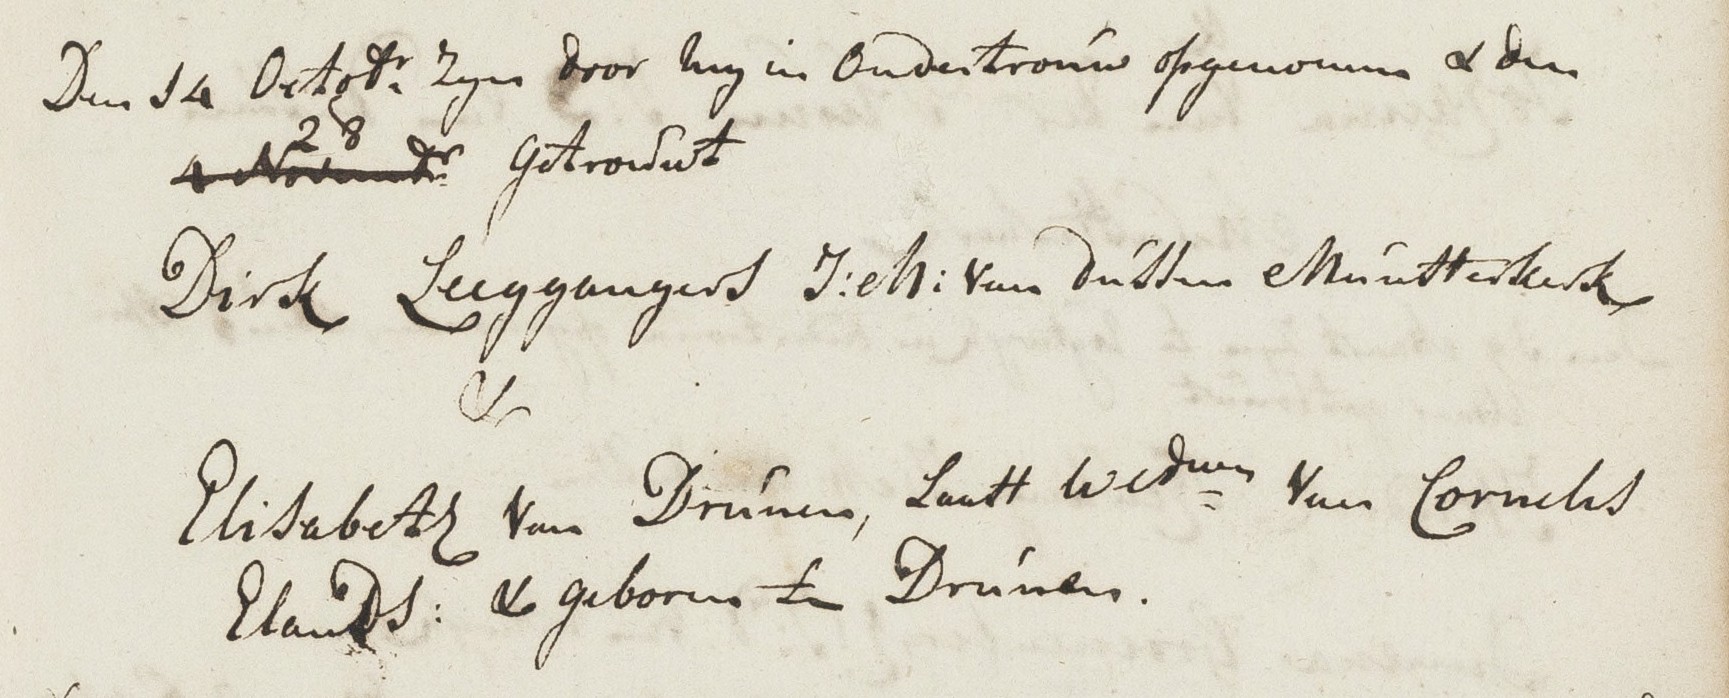 Den 14 Octobr. Zyn door my in Ondertrouw opgenomen & den
28
4 Novembr. Getrouwt
Dirk Leeggangers J: M: van Dussen Munsterkerk
&
Elisabeth van Drunen, Laatt Weduwe van Cornelis
Elands: & geboren te Drunen.